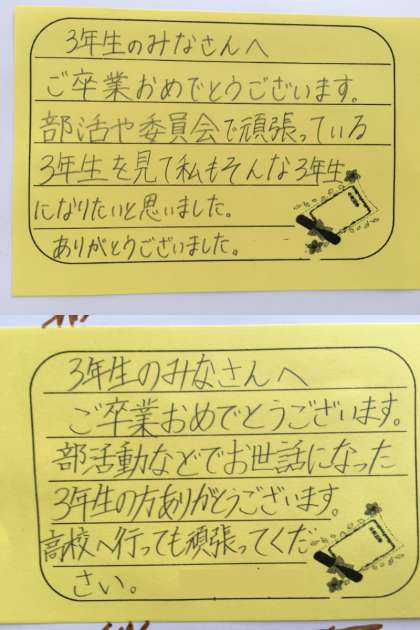 3年生のみなさんへ
ご卒業おめでとうございます。
部活や委員会で頑張っている
3年生を見て私もそんな3年生
になりたいと思いました。
ありがとうございました。
3年生のみなさんへ
ご卒業おめでとうございます。
部活動などでお世話になった
3年生の方ありがとうございます。
高校へ行っても頑張ってくだ
さい。